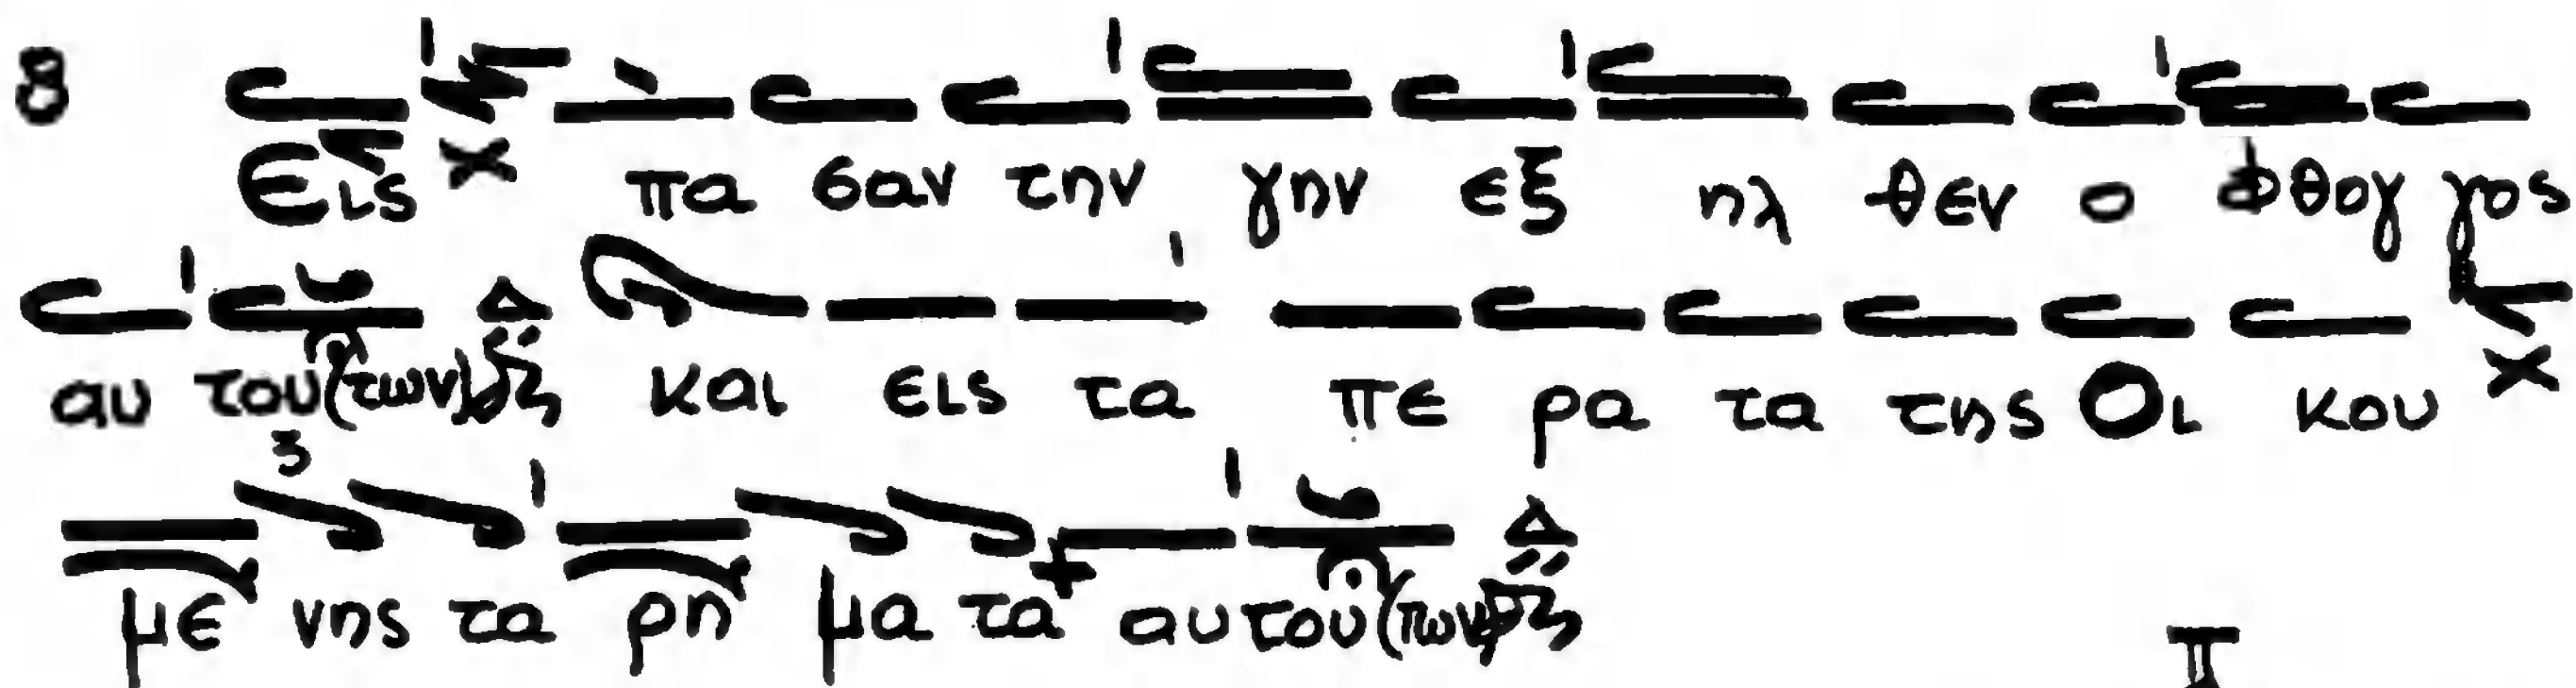 8 Εις πα σαν την γην εξ ηλ θεν ο φθογ γος
αυ του (των) και εις τα πε ρα τα της Οι κου
με νης τα ρη μα τα αυτου (των)